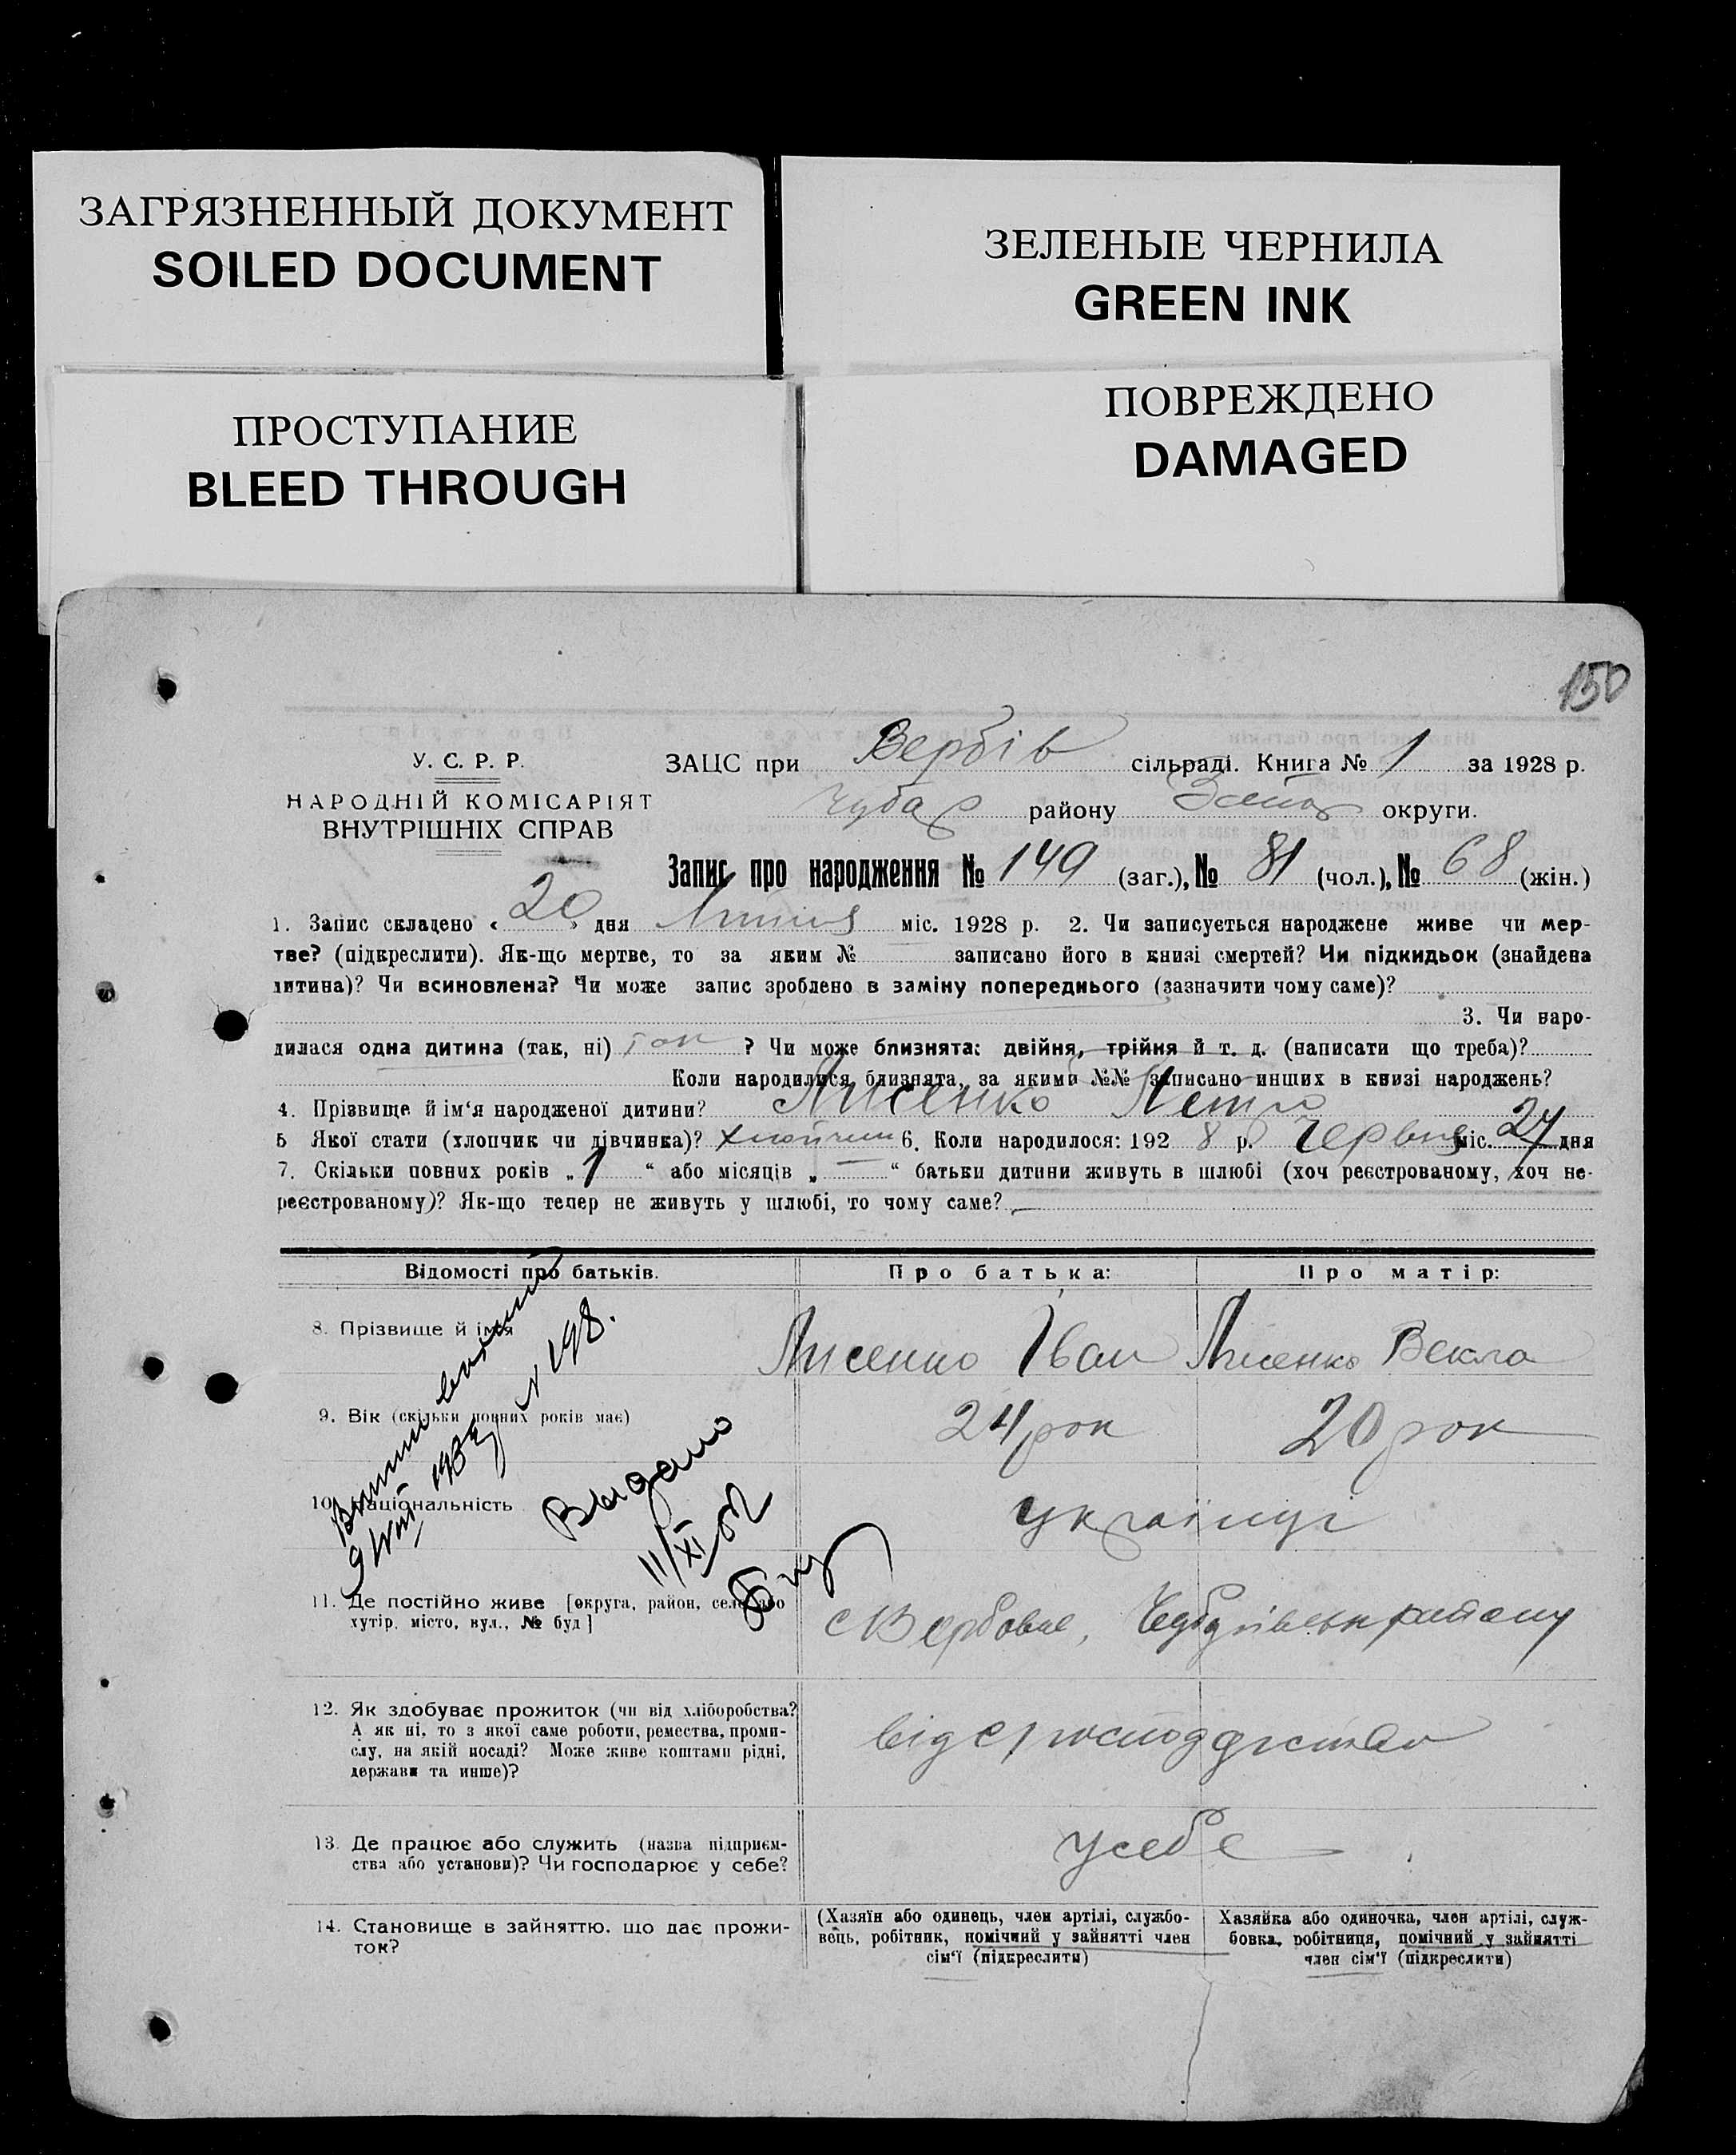 ЗАГРЯЗНЕННЫЙ ДОКУМЕНТ
SOILED DOCUMENT
ЗЕЛЕНЫЕ ЧЕРНИЛА
GREEN INK
ПРОСТУПАНИЕ
BLEED THROUGH
ПОВРЕЖДЕНО
DAMAGED
150
У. С. Р. Р.
НАРОДНІЙ КОМІСАРІЯТ
ВНУТРІШНІХ СПРАВ
ЗАЦС при Вербів сільраді. Книга № 1 за 1928 р.
Чубар району Запор округи.
Запис про народження № 149 (заг.), № 81 (чол.), № 68 (жін.)
1. Запис складено « 20 » дня Липня міс. 1928 р. 2. Чи записується народжене живе чи мер-
тве? (підкреслити). Як-що мертве, то за яким № записано його в книзі смертей? Чи підкидьок (знайдена
дитина)? Чи всиновлена? Чи може запис зроблено в заміну попереднього (зазначити чому саме)?
3. Чи наро-
дилася одна дитина (так, ні) так ? Чи може близнята: двійня, трійня й т. д. (написати що треба)?
Коли народилися близнята, за якими №№ записано инших в книзі народжень?
4. Прізвище й ім'я народженої дитини? Лисенко Петро
5 Якої стати (хлопчик чи дівчинка)? хлопчик 6. Коли народилося: 192 8 р. Червня міс. 27 дня
7. Скільки повних років „ 1 “ або місяців „ — “ батьки дитини живуть в шлюбі (хоч реєстрованому, хоч не-
реєстрованому)? Як-що тепер не живуть у шлюбі, то чому саме?
Відомості про батьків. Про батька: Про матір:
8. Прізвище й ім'я Лисенко Іван Лисенко Векла
9. Вік (скільки повних років має) 24 рок 20 рок
10. Національність українці
11. Де постійно живе [округа, район, село або
хутір, місто, вул., № буд] с Вербове, Чубарівськ району
12. Як здобуває прожиток (чи від хліборобства?
А як ні, то з якої саме роботи, ремества, проми-
слу, на якій посаді? Може живе коштами рідні,
держави та инше)?
від с/господарства
13. Де працює або служить (назва підприєм-
ства або установи)? Чи господарює у себе?
у себе
14. Становище в зайняттю, що дає прожи-
ток?
(Хазяїн або одинець, член артілі, службо-
вець, робітник, помічний у зайнятті член
сім'ї (підкреслити)
Хазяйка або одиночка, член артілі, служ-
бовка, робітниця, помічний у зайнятті
член сім'ї (підкреслити)
№ 198.
Выдано
11/XI 52